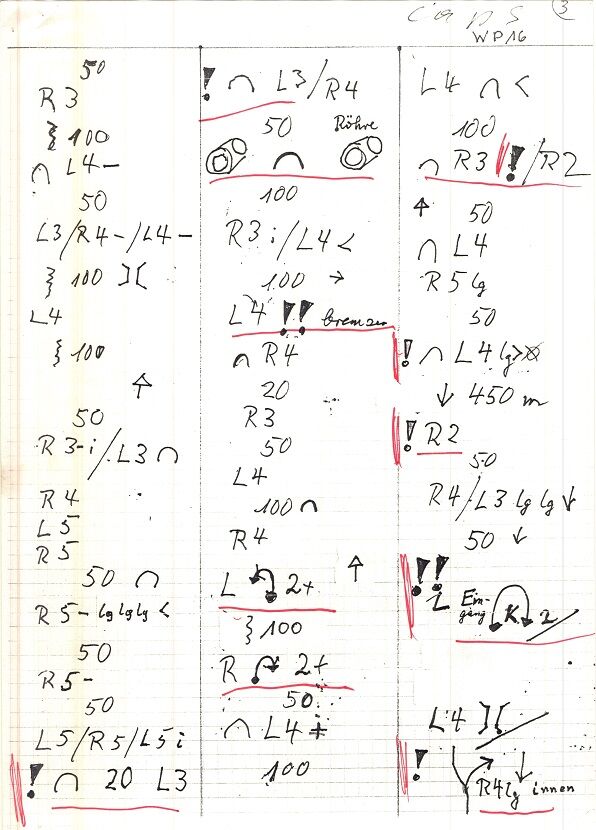 3
WP16
50
R3
} 100
∩ L4 –
50
L3/R4 –/L4 –
} 100 ][
L4
} 100
↑
50
R3-i/L3 ∩
R4
L5
R5
50 ∩
R5 – lg lg lg <
50
R5 –
50
L5/R5/L5 i
! ∩ 20 L3
! ∩ L3/R4
50 Röhre
∩
100
R3 i/L4 <
100 →
L4 !! bremsen
∩ R4
20
R3
50
L4
100 ∩
R4
L 2+ ↑
} 100
R 2+
50
∩ L4
100
L4 ∩ <
100
∩ R3 !/R2
↑ 50
∩ L4
R5 lg
50
! ∩ L4 lg >
↓ 450 m
! R2
50
R4/L3 lg lg ↓
50 ↓
!! Ein-
gang K 2
L4 ][
! ↓
R4 lg innen